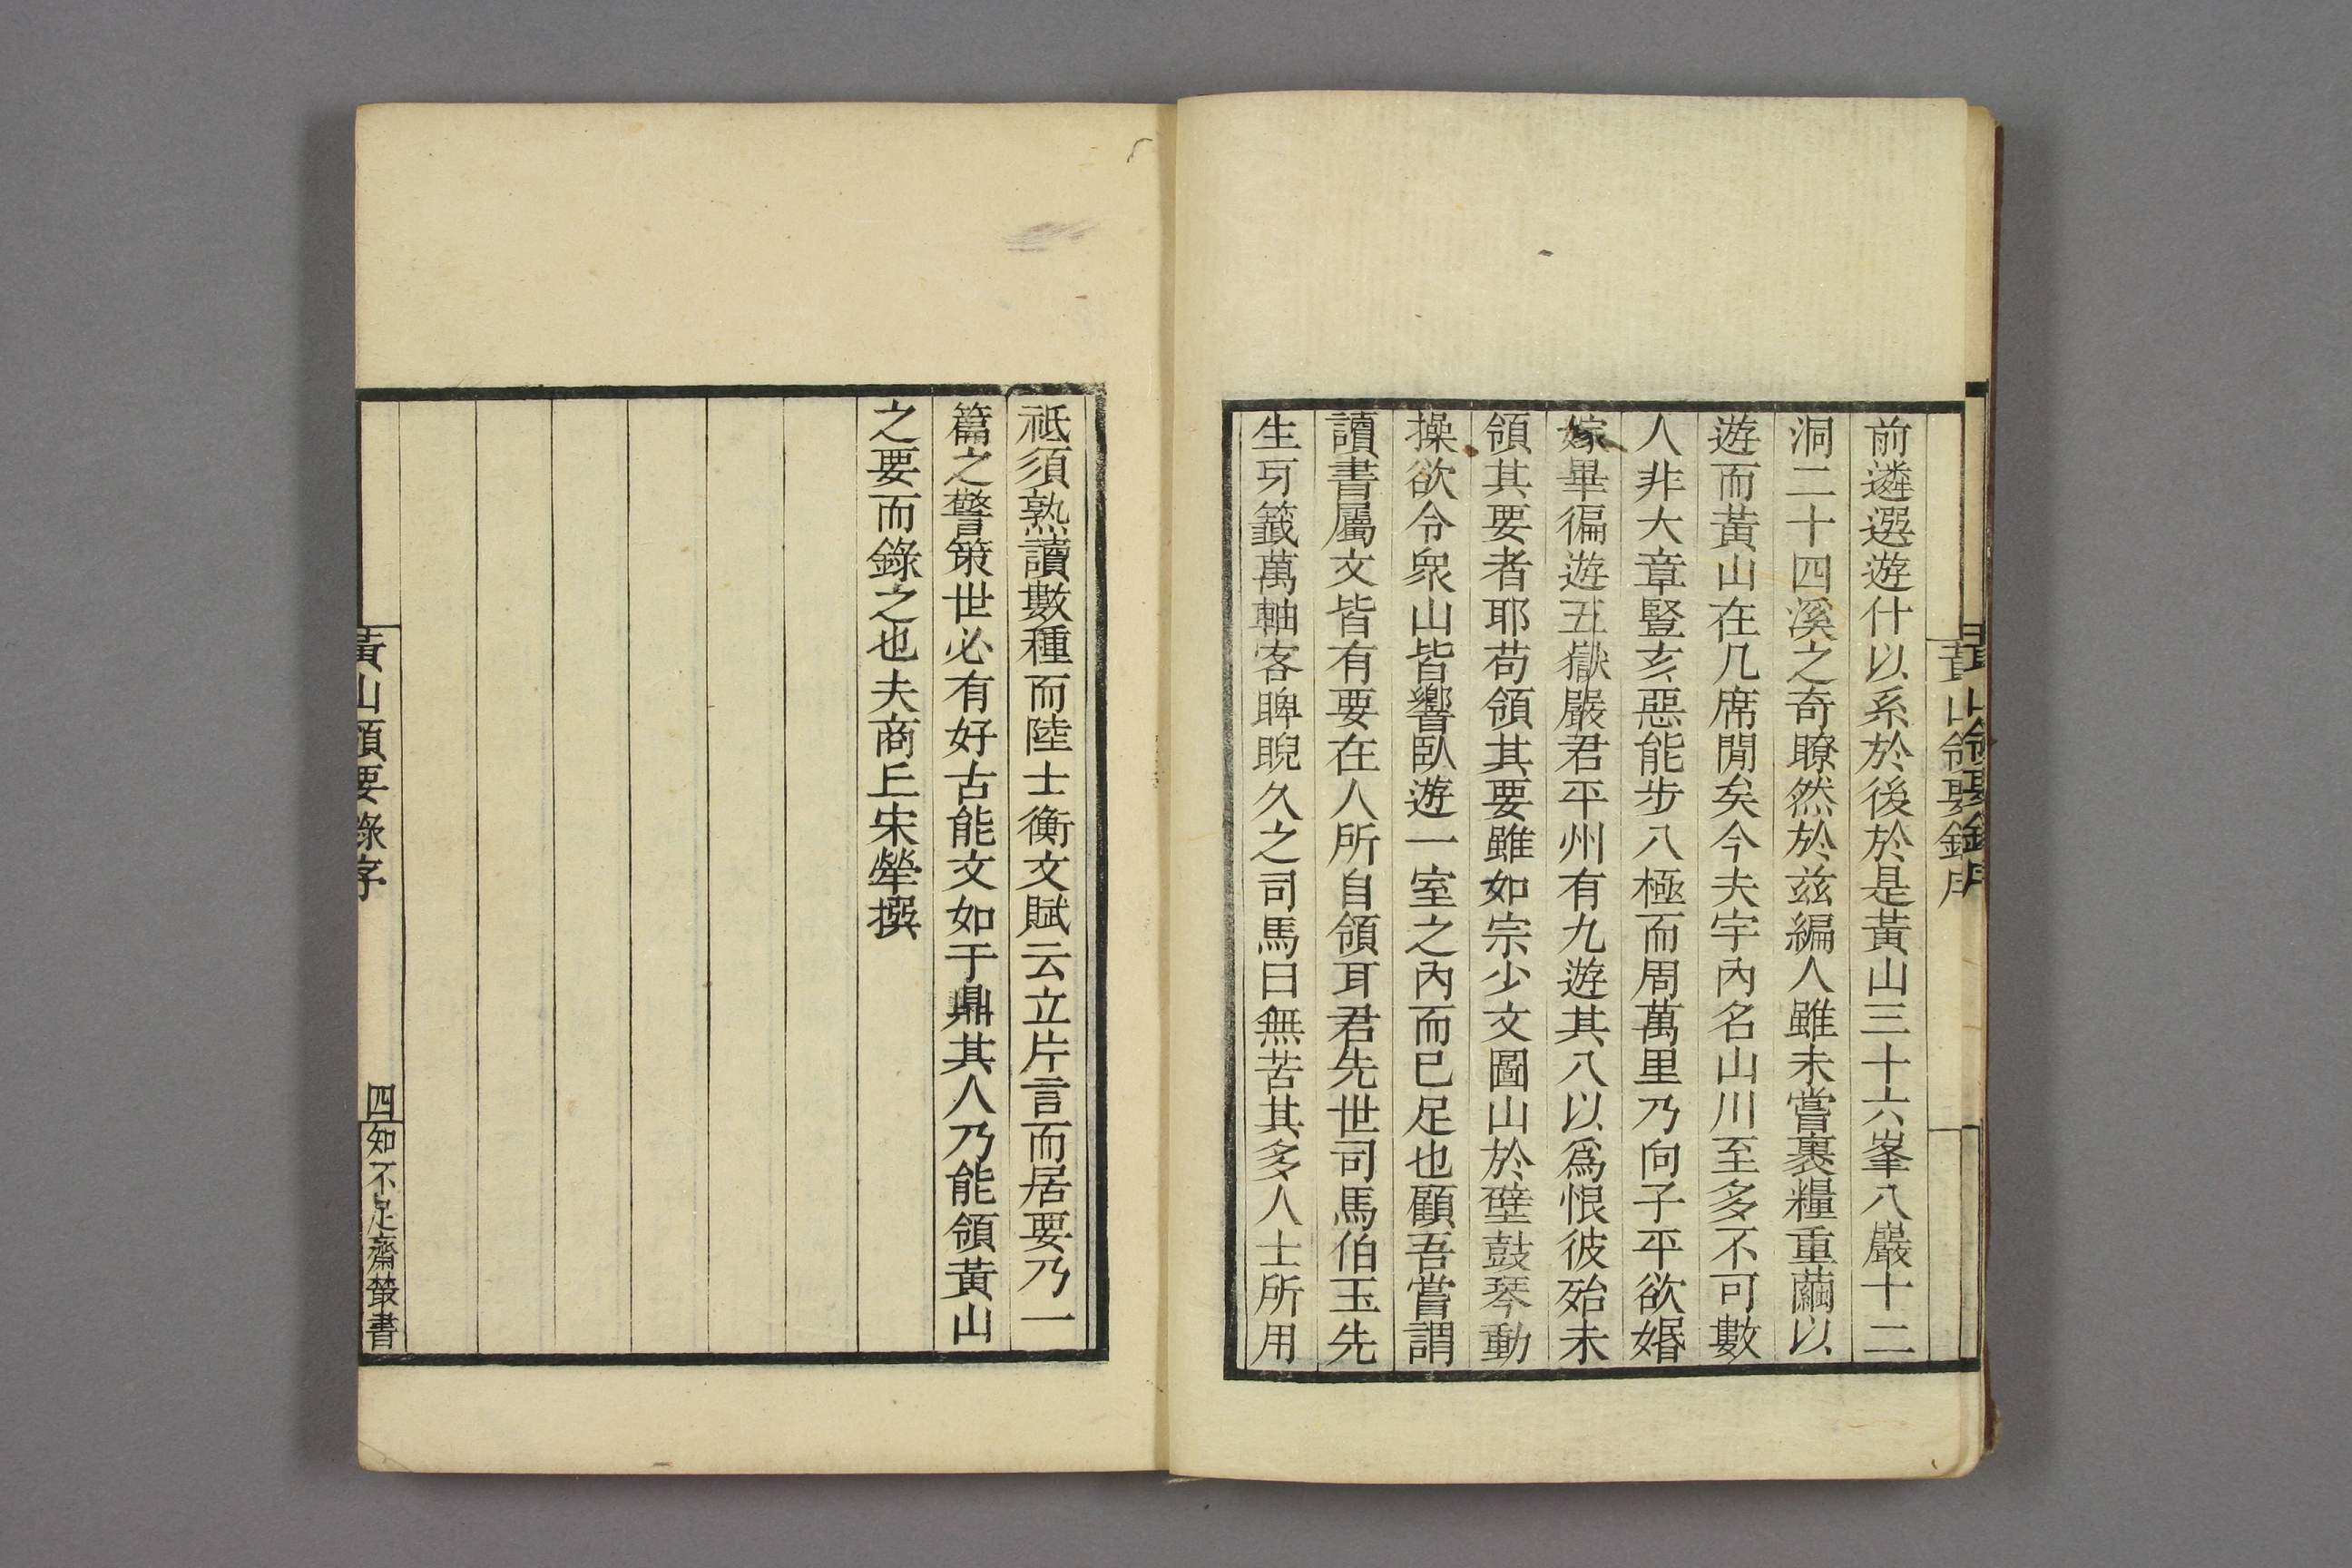 前遴選遊什以系於後於是黃山三十六峯八巖十二
洞二十四溪之奇瞭然於兹編人雖未嘗裹糧重繭以
遊而黃山在几席閒矣今夫宇內名山川至多不可數
人非大章豎亥惡能步八極而周萬里乃向子平欲婚
嫁畢徧遊五嶽嚴君平州有九遊其八以爲恨彼殆未
領其要者耶苟領其要雖如宗少文圖山於壁鼓琴動
操欲令眾山皆響臥遊一室之內而已足也顧吾嘗謂
讀書屬文皆有要在人所自領耳君先世司馬伯玉先
生牙籤萬軸客睥睨久之司馬曰無苦其多人士所用
祗須熟讀數種而陸士衡文賦云立片言而居要乃一
篇之警策世必有好古能文如于鼎其人乃能領黃山
之要而錄之也夫商丘宋犖撰
黃山領要錄序
四
知不足齋叢書